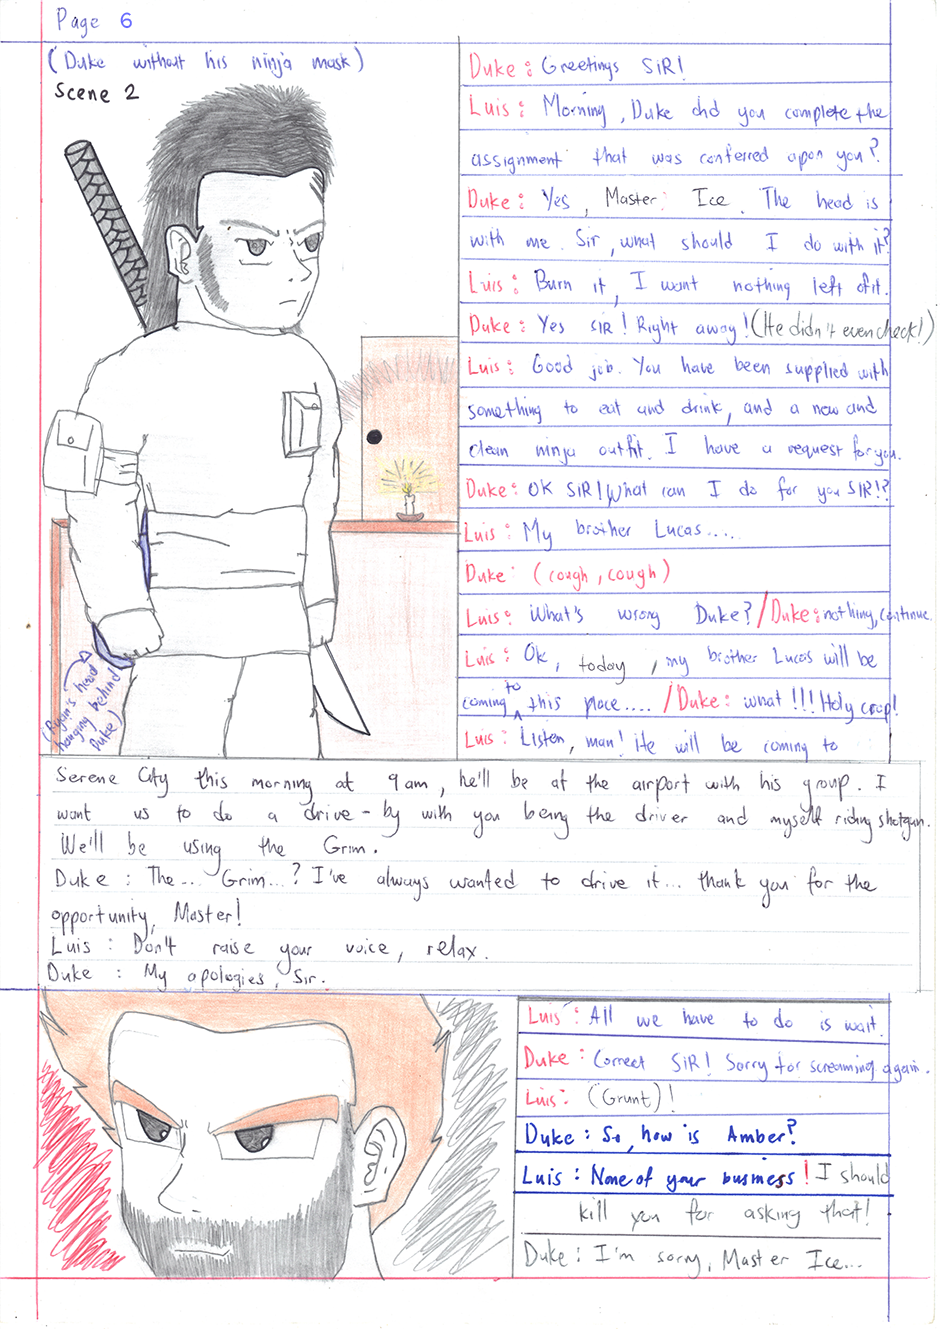 Page 6
(Duke without his ninja mask)
Scene 2
(Ryan's head
hanging behind
Duke)
Duke: Greetings SIR!
Luis: Morning, Duke did you complete the
assignment that was conferred upon you?
Duke: Yes, Master Ice. The head is
with me. Sir, what should I do with it?
Luis: Burn it, I want nothing left of it.
Duke: Yes SIR! Right away! (He didn't even check!)
Luis: Good job. You have been supplied with
something to eat and drink, and a new and
clean ninja outfit. I have a request for you.
Duke: OK SIR! What can I do for you SIR!?
Luis: My brother Lucas.....
Duke: (cough, cough)
Luis: What's wrong Duke? / Duke: nothing, continue.
Luis: Ok, today, my brother Lucas will be
coming to this place.... / Duke: what!!! Holy crap!
Luis: Listen, man! He will be coming to
Serene City this morning at 9 am, he'll be at the airport with his group. I
want us to do a drive-by with you being the driver and myself riding shotgun.
We'll be using the Grim.
Duke: The... Grim...? I've always wanted to drive it... thank you for the
opportunity, Master!
Luis: Don't raise your voice, relax.
Duke: My apologies, Sir.
Luis: All we have to do is wait.
Duke: Correct SIR! Sorry for screaming again.
Luis: (Grunt)!
Duke: So, how is Amber?
Luis: None of your business! I should
kill you for asking that!
Duke: I'm sorry, Master Ice...